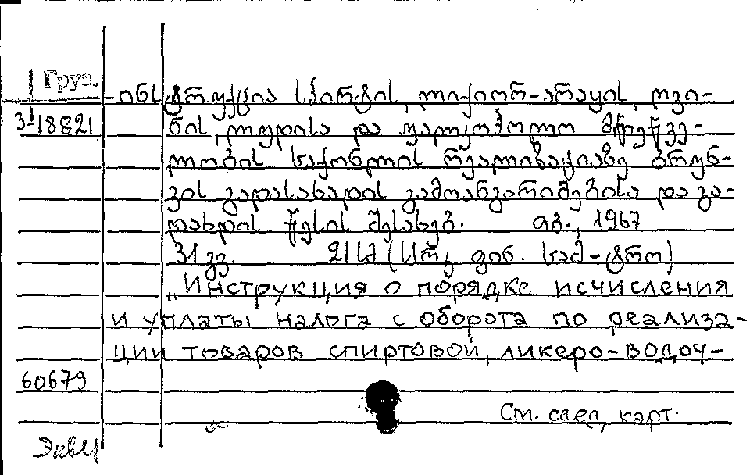 Груз.
ინსტრუქცია სპირტის, ლიქიორ-არაყის, ღვი-
3-18821
ნის, ლუდისა და უალკოჰოლო მრეწვე-
ლობის საქონლის რეალიზაციაზე ბრუნ-
ვის გადასახადის გამოანგარიშებისა და გა-
დახდის წესის შესახებ. თბ., 1967
31 გვ. 21 სმ (სსრ, ფინ. სამ-ტრო)
„Инструкция о порядке исчисления
и уплаты налога с оборота по реализа-
ции товаров спиртовой, ликеро-водоч-
60679
См. след. карт.